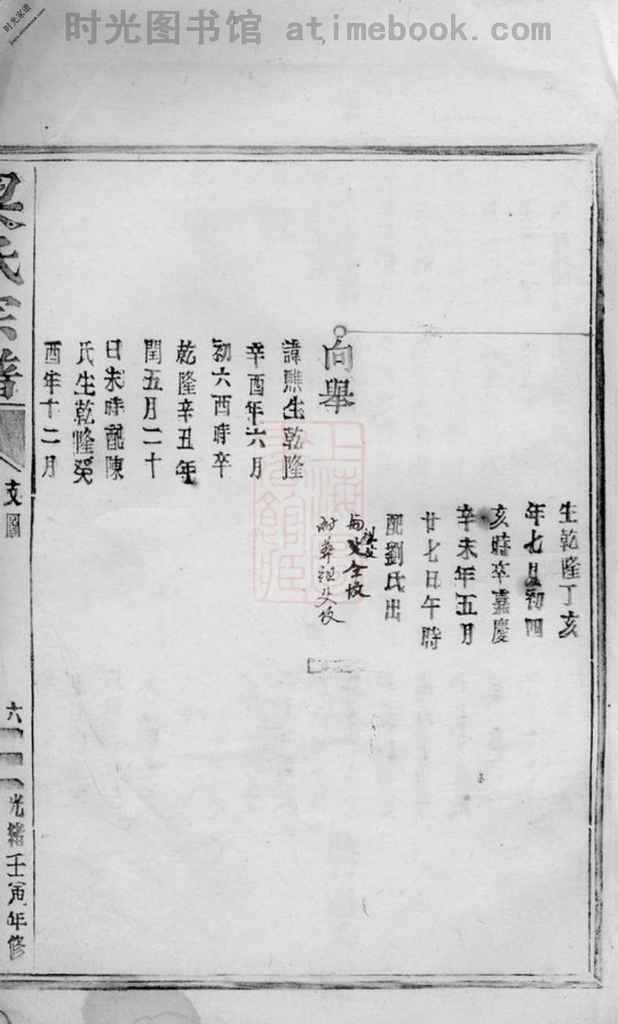 时光图书馆 atimebook.com
时光家谱
生乾隆丁亥
年七月初四
亥時卒嘉慶
辛未年五月
廿七日午時
配劉氏出
附葬祖父坟
向舉
諱㷱生乾隆
辛酉年六月
初六酉時卒
乾隆辛丑年
閏五月二十
日未時配陳
氏生乾隆癸
酉年十二月
梁氏宗譜
支圖
六
光緒壬寅年修